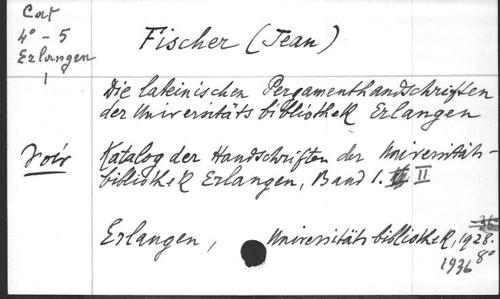 Cat
4° - 5
Erlangen
1
Fischer (Jean)
Die lateinischen Pergamenthandschriften
der Universitäts bibliothek Erlangen
voir
Katalog der Handschriften der Universitäts-
bibliothek Erlangen, Band 1. II
Erlangen, Universitäts bibliothek, 1928.
1936 8°